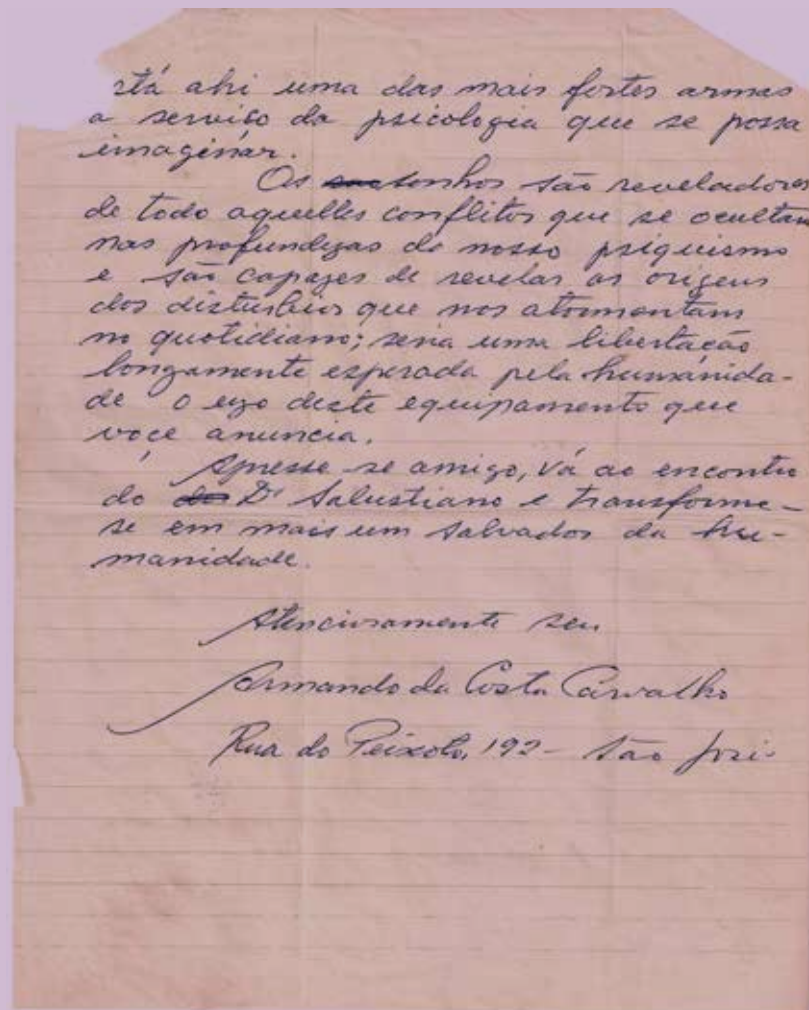 stá ahi uma das mais fortes armas
a serviço da psicologia que se possa
imaginar.
Os sonhos são reveladores
de todo aquelles conflitos que se ocultam
nas profundezas do nosso psiquismo
e são capazes de revelar as origens
dos disturbios que nos atormentam
no quotidiano; seria uma libertação
longamente esperada pela humanida-
de o uzo deste equipamento que
voçe anuncia.
Apresse-se amigo, vá ao encontro
do Dr Salustiano e transforme-
se em mais um salvador da hu-
manidade.
Atenciosamente seu
Armando da Costa Carvalho
Rua do Peixoto, 192 - São José